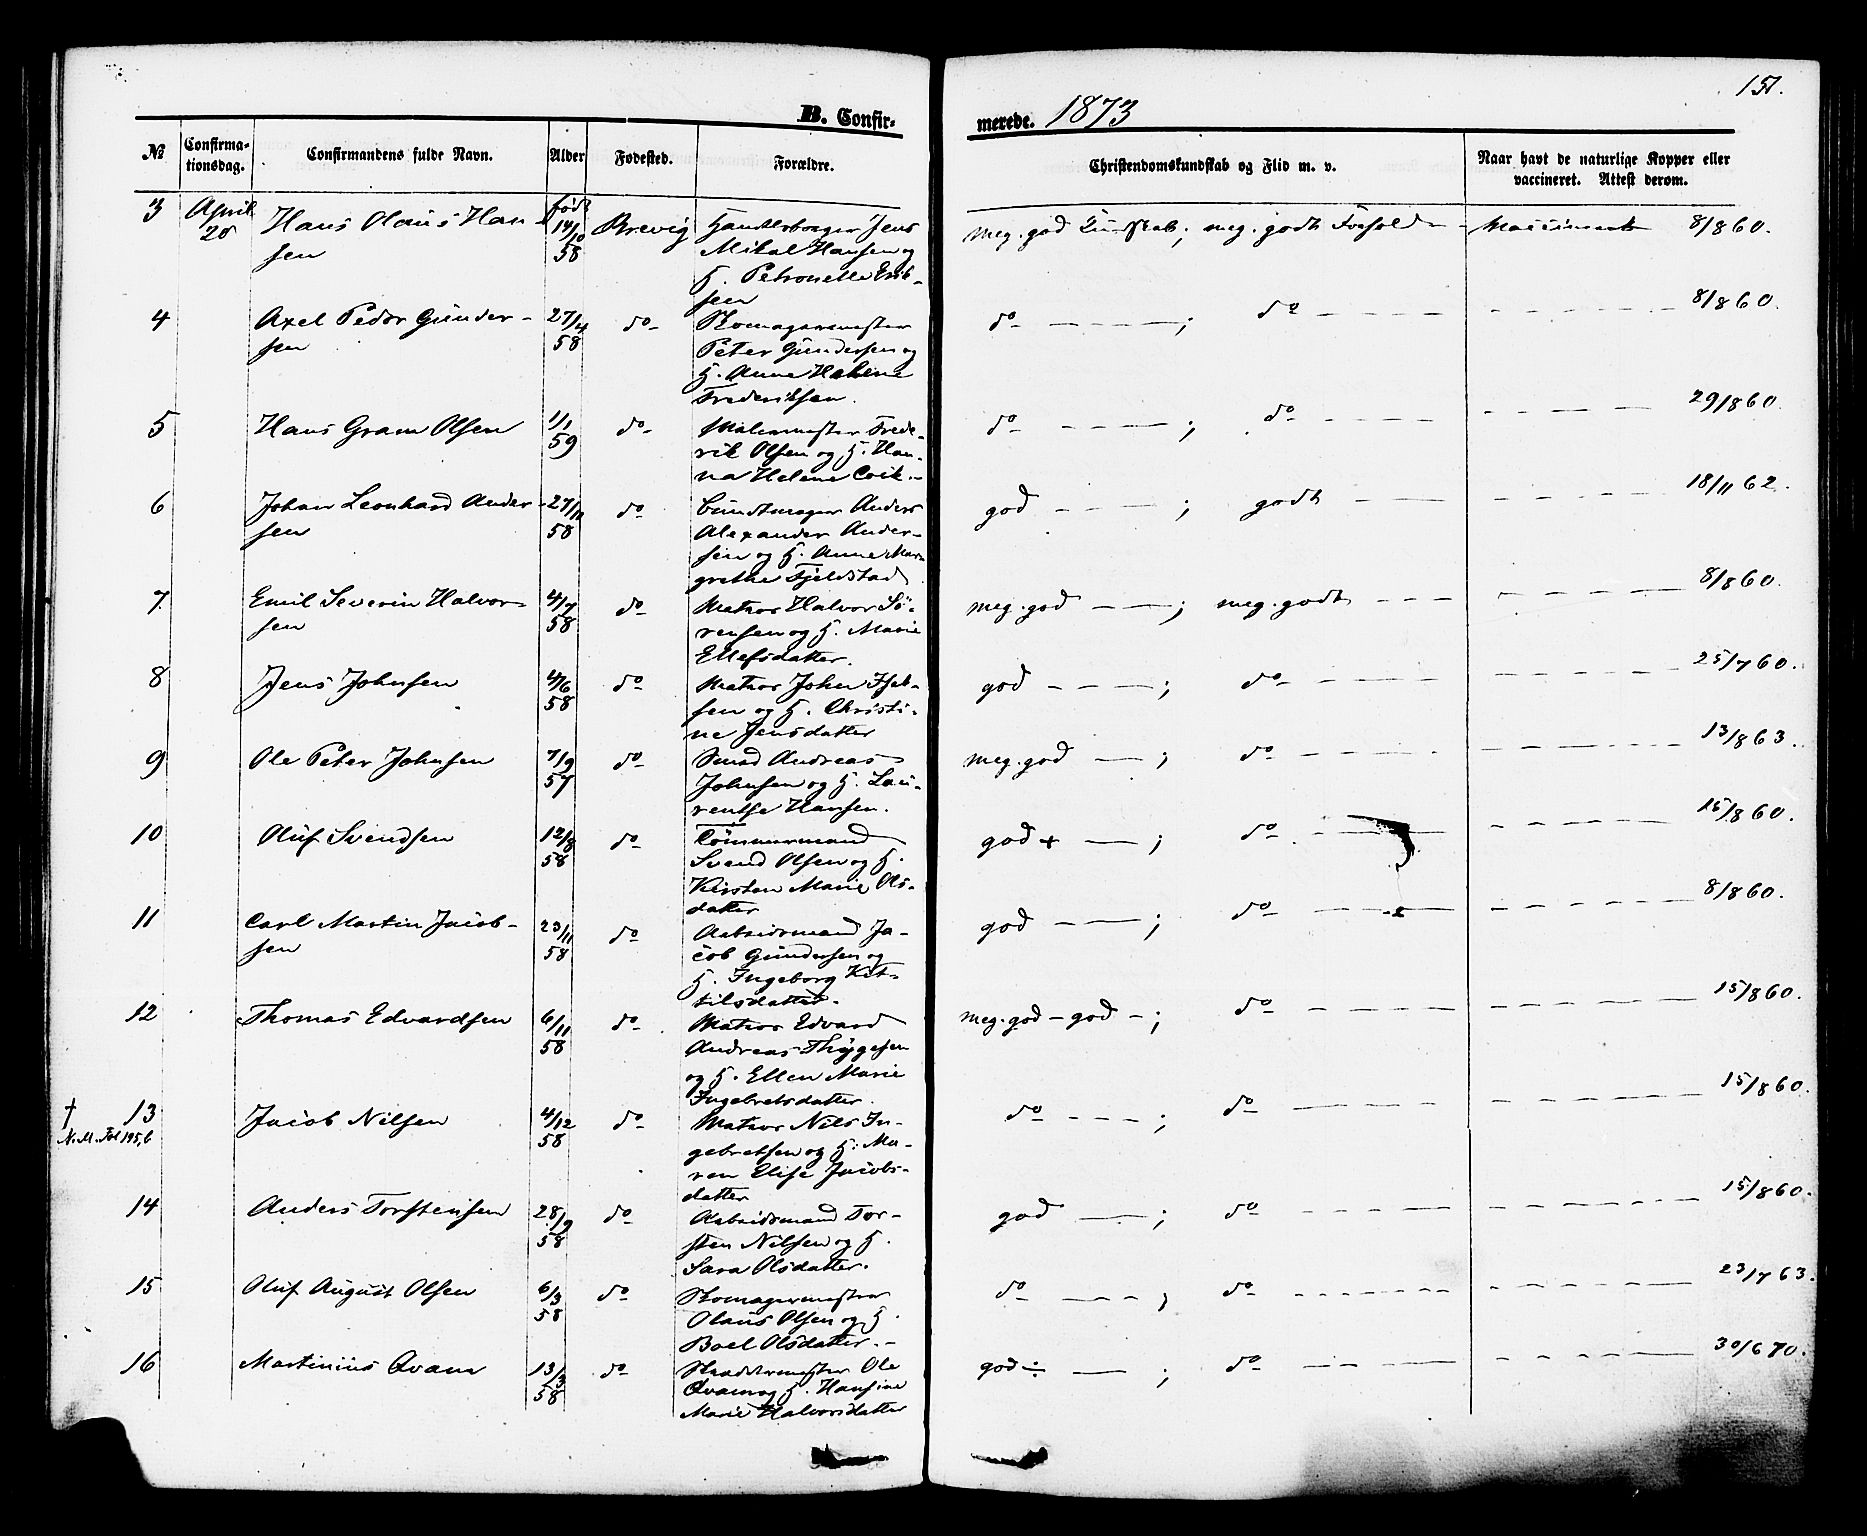 151.
B. Confirmerede. 1873
№
Confirmationsdag.
Confirmandens fulde Navn.
Alder
Fødested.
Forældre.
Christendomskundskab og Flid m. v.
Naar havt de naturlige Kopper eller
vaccineret. Attest derom.
3 April 20 Hans Olaus Han-
sen
født 14/10 58 Brevig
Handelsborger Jens
Mikal Hansen og
H. Petronelle Erik-
sen
meg. god Kundskab; meg. godt Forhold - Vaccineret 8/8 60.
4 Axel Peder Gunder-
sen
27/4 58 do
Skomagermester
Peter Gundersen og
H. Anne Helene
Frederiksen.
do - - - ; do - - - 8/8 60.
5 Hans Gram Olsen 1/1 59 do
Malermester Frede-
rik Olsen og H. Han-
na Helene
do - - - ; do - - - 29/8 60.
6 Johan Leonhard Ander-
sen
27/11 58 do
Buntmager Anders
Alexander Ander-
sen og H. Anne Mar-
grethe Fjeldstad
god - - - ; godt - - - 18/11 62.
7. Emil Severin Halvor-
sen
4/7 58 do
Matros Halvor Sö-
rensen og H. Marie
Ellefsdatter.
meg. god - - ; meg. godt - - - 8/8 60.
8 Jens Johnsen 4/6 58 do
Matros John
sen og H. Christi-
ne Jensdatter
god - - - ; do - - - 25/7 60.
9 Ole Peter Johnsen 7/9 57 do
Smed Andreas
Johnsen og H. Lau-
rentse Hansen.
meg. god - ; do - - - 13/8 63.
10 Oluf Svendsen 12/8 58 do
Tömmermand
Svend Olsen og H.
Kirsten Marie Ols-
datter
god + - ; do - - - 15/8 60.
11 Carl Martin Jacob-
sen
23/11 58 do
Arbeidsmand Ja-
cob Gundersen og
H. Ingeborg Ket-
tilsdatter.
god - - ; do - - - 8/8 60.
12 Thomas Edvardsen 6/11 58 do
Matros Edvard
Andreas Thygesen
og H. Ellen Marie
Ingebretsdatter.
meg. god - god - ; do - - - 15/8 60.
† 13
N. M. Fol 195,6
Jacob Nilsen 4/12 58 do
Matros Nils In-
gebretsen og H. Ma-
ren Elise Jacobs-
datter
do - - - ; do - - - 15/8 60.
14 Anders Torstensen 28/9 58 do
Arbeidsmand Tor-
sten Nilsen og H.
Sara Olsdatter.
god - - ; do - - - 15/8 60.
15 Oluf August Olsen 6/3 58 do
Skomagermester
Olaus Olsen og H.
Boel Olsdatter.-
do - - - ; do - - - 23/7 63.
16 Martinius Qvam 13/3 58 do
Skreddermester Ole
Qvam og H. Hansine
Marie Halvorsdatter
god ÷ - ; do - - - 30/6 70.